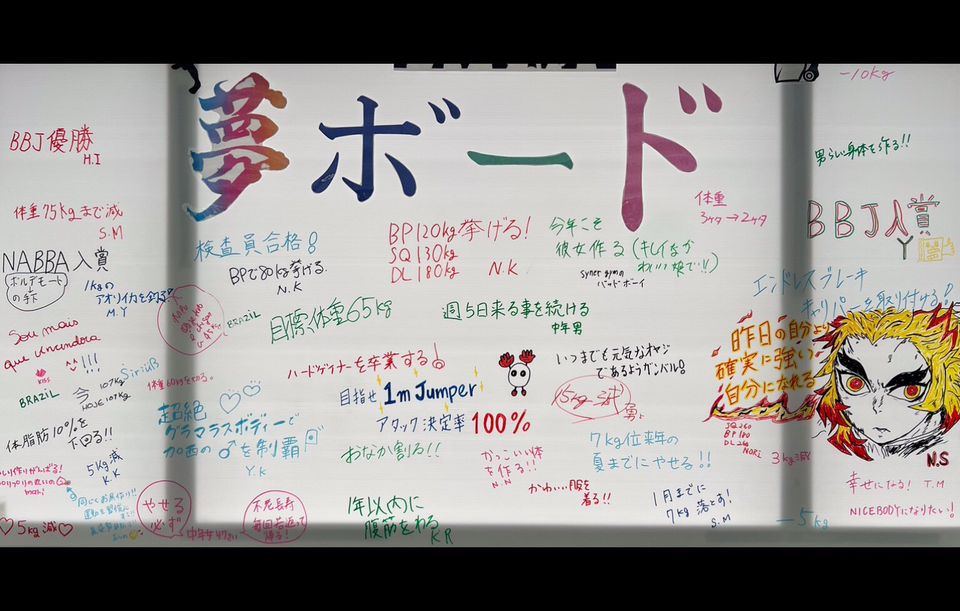 夢ボード
-10kg
BBJ優勝
H.I
男らしい身体を作る!!
体重75kgまで減
S.M
体重
3ケタ→2ケタ
BBJ入賞
Y
NABBA入賞
ボルデモート
の手下
1kgの
アオリイカを釣る!
M.Y
検査員合格!
BPで80kg挙げる.
N.K
BP120kg挙げる!
SQ130kg
DL180kg
N.K
今年こそ
彼女作る(キレイなか
わいい娘で!!)
syner gymの
バッドボーイ
エンドレスブレーキ
キャリパーを取り付ける!
BRAZIL
目標、体重65kg
週5日来る事を続ける
中年男
昨日の自分より
確実に強い
自分になれる
SQ260
BP180
DL260
NORI
Sou mais
que vncendora
!!!
KISS
BRAZIL
今107kg
HOJE 107kg
SiriuB
体重60kgを切る。
ハードゲイナーを卒業する!
目指せ1m Jumper
アタック決定率100%
いつまでも元気なオヤジ
であるようガンバル!
15kg減
超絶
グラマラスボディーで
加西の♂を制覇
Y.K
体脂肪10%を
下回る!!
5kg減
K.K
おなか割る!!
かっこいい体
を作る!!
N.N
7kg位来年の
夏までにやせる!!
3kg減
N.S
かわいい服を
着る!!
幸せになる! T.M
NICEBODYになりたい!
やせる
必ず
不老長寿
毎回若返って
帰る!
中年女47さい
1年以内に
腹筋をわる
KR
1月までに
7kg落とす!
S.M
♡5kg減♡
-5kg